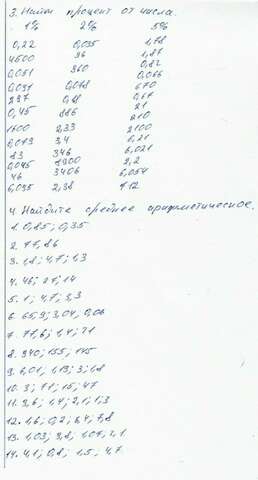 3. Найти процент от числа.
1% 2% 5%
0,22 0,035 1,78
4500 36 1,87
0,051 360 0,82
0,031 0,018 0,016
237 0,18 670
0,45 886 0,67
1600 2,33 21
6,073 34 210
83 346 2100
0,045 8300 0,21
46 3406 6,021
6,035 2,38 9,2
6,054
9.12
4. Найдите среднее арифметическое.
1. 0,85; 0,35
2. 77, 86
3. 1,8; 4,7; 1,3
4. 46; 21; 14
5. 1; 4,7; 3,3
6. 65,9; 3,04, 0,06
7. 77,6; 1,4; 21
8. 940; 155; 145
9. 6,01; 1,13; 3; 1,8
10. 3; 71; 15; 47
11. 9,6; 1,4; 2,1; 1,3
12. 1,6; 0,2; 8,4; 7,8
13. 1,03; 9,8; 1,07; 2,1
14. 4,1; 0,8; 1,5; 4,7